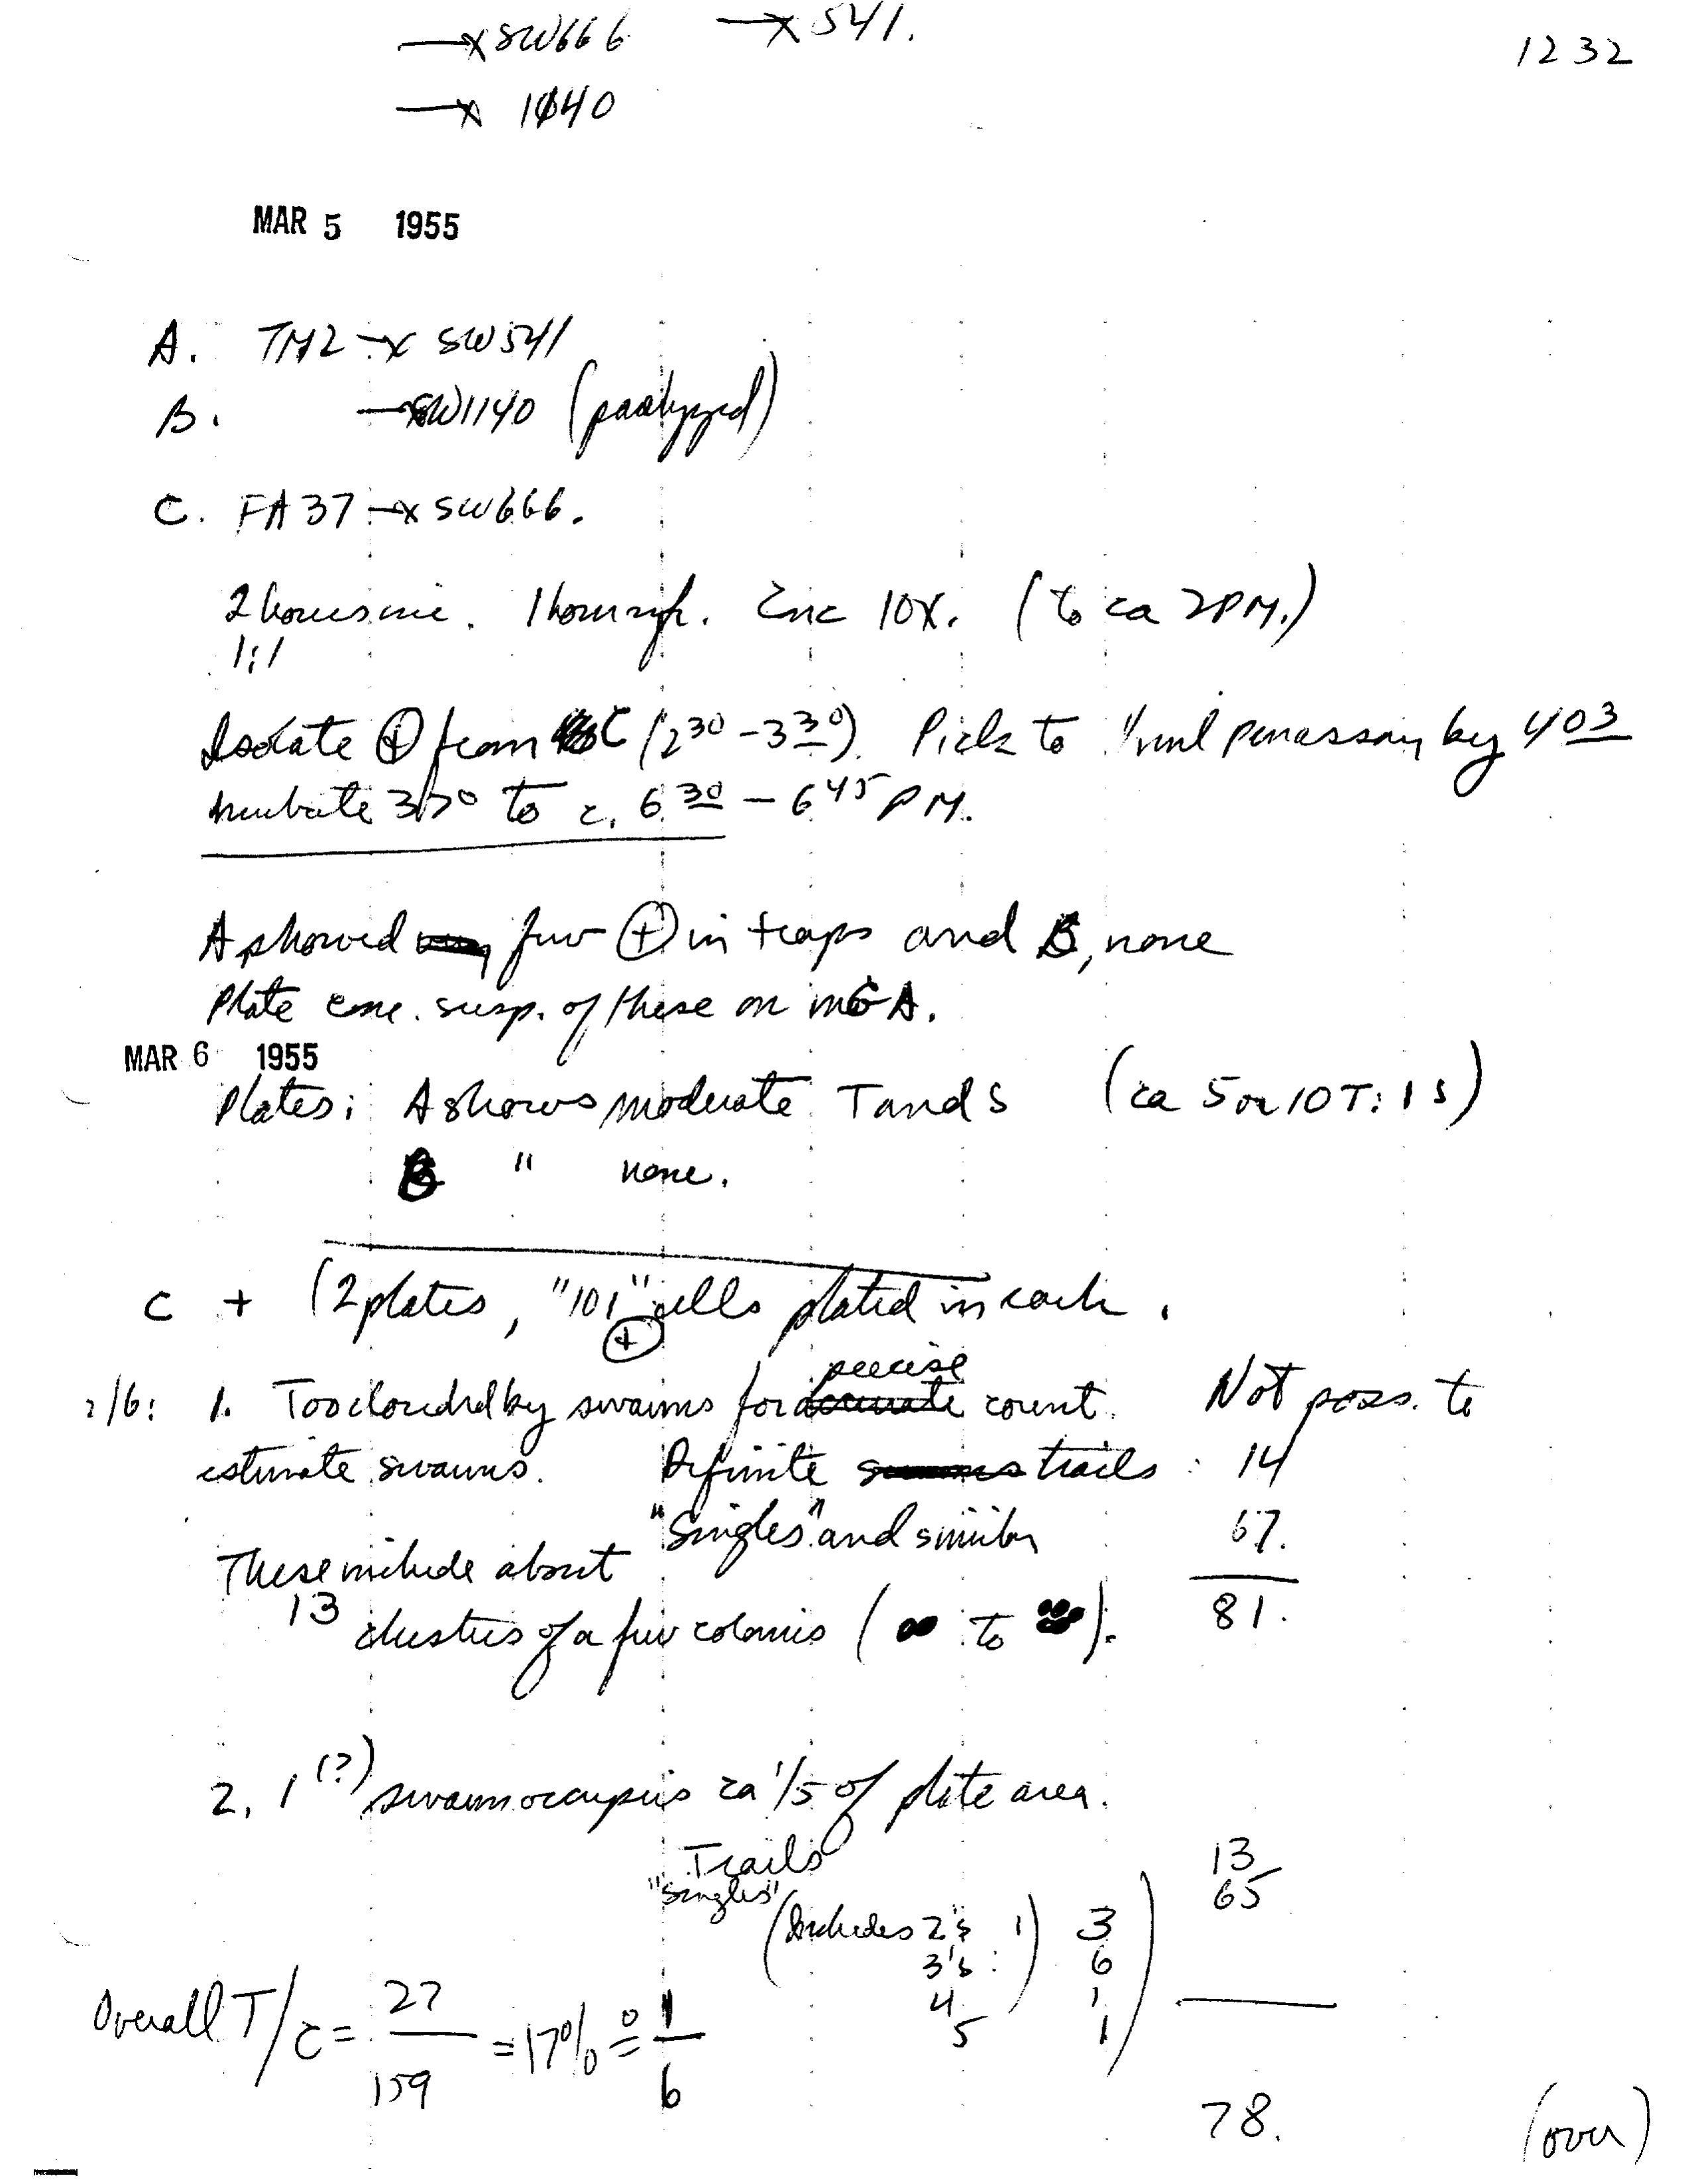 —x SW666 —x 541.
1232
—x 1040
MAR 5 1955
A. TM2 —x SW541
B. —x SW1140 (paralyzed)
C. FA37 —x SW666.
2 hours inc. 1 hour Inc 10X. (to ca 2PM.)
1:1
Isolate ⊕ from C (2 30 – 3 30). Pick to 1 ml penassay by 4 03
Incubate 37° to c. 6 30 – 6 45 PM.
A showed few ⊕ in traps and B, none
Plate conc. susp. of these on mGA.
MAR 6 1955
Plates: A shows moderate T and S (ca 5 or 10 T: 1 S)
B " none.
C + (2 plates, "101" cells plated in each.
⊕
precise
3/6: 1. Too clouded by swarms for accurate count. Not poss. to
estimate swarms. Definite swarms trails : 14
"Singles" and similar 67.
These include about
13 clusters of a few colonies ( to ). 81.
2. 1 (?) swarm occupies ca 1/5 of plate area.
Trails 13
"Singles" 65
(Includes 2's 1) 3
3's : 6
4 1
5 1
Overall T/C = 27/159 = 17% ≐ 1/6
78.
(over)